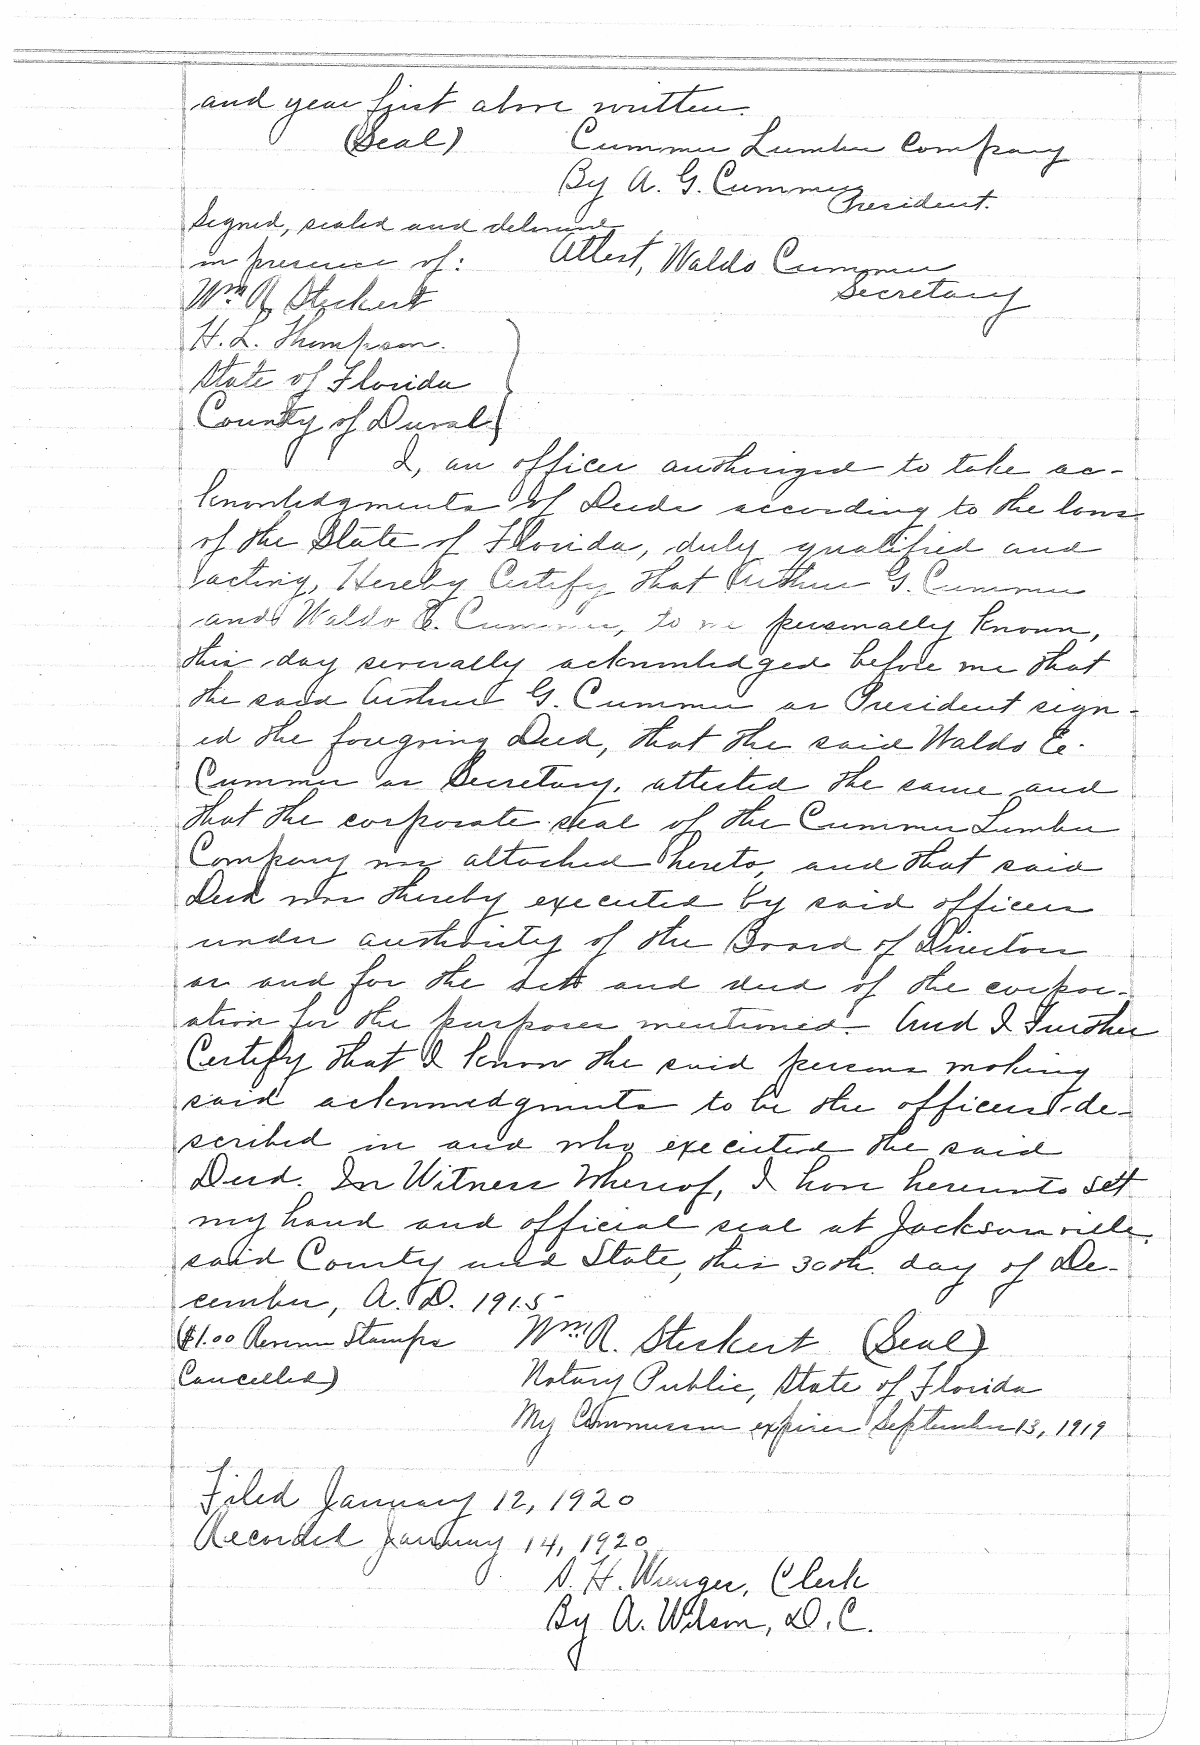 and year first above written.
(Seal) Cummer Lumber Company
By A. G. Cummer
President.
Signed, sealed and delivered
in presence of: Attest, Waldo Cummer
Secretary
Wm R Steckert
H. L. Thompson.
State of Florida
County of Duval
I, an officer authorized to take ac-
knowledgments of Deeds according to the laws
of the State of Florida, duly qualified and
acting, Hereby Certify that Arthur G. Cummer
and Waldo E. Cummer, to me personally known,
this day severally acknowledged before me that
the said Arthur G. Cummer as President sign-
ed the foregoing Deed, that the said Waldo E.
Cummer as Secretary, attested the same and
that the corporate seal of the Cummer Lumber
Company was attached hereto, and that said
Deed was thereby executed by said officers
under authority of the Board of Directors
as and for the act and deed of the corpor-
ation for the purposes mentioned. And I Further
Certify that I know the said persons making
said acknowledgments to be the officers de-
scribed in and who executed the said
Deed. In Witness Whereof, I have hereunto set
my hand and official seal at Jacksonville,
said County and State, this 30th. day of De-
cember, A. D. 1915
($1.00 Revenue Stamps Wm. R. Steckert (Seal)
Cancelled) Notary Public, State of Florida
My Commission expires September 13, 1919
Filed January 12, 1920
Recorded January 14, 1920
S. H. Wienges, Clerk
By A. Wilson, D. C.